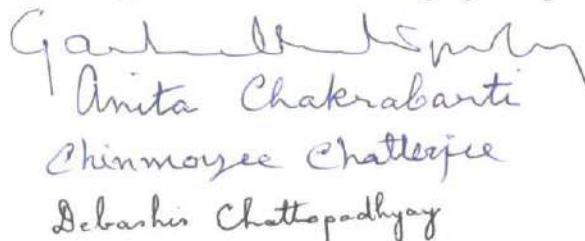 Anita Chakrabarti
Chinmoyee Chatterjee
Debashis Chattopadhyay